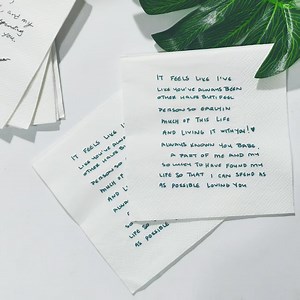 my
you.
IT FEELS LIKE I'VE
LIKE YOU'VE ALWAYS BEEN
OTHER HALVE BUT, FEEL
PERSON SO EARLY IN
MUCH OF THIS LIFE
AND LIVING IT WITH YOU!
ALWAYS KNOWN YOU BABE.
A PART OF ME AND MY
SO LUCKY TO HAVE FOUND MY
LIFE SO THAT I CAN SPEND AS
AS POSSIBLE LOVING YOU
IT FEELS LIKE I
LIKE YOU'VE ALWAY
OTHER HALVE
PERSON SO
MUCH OF
AND LI
ALWAYS
A PA
SO LUCKY
LIFE SO THA
AS POSSIBLE